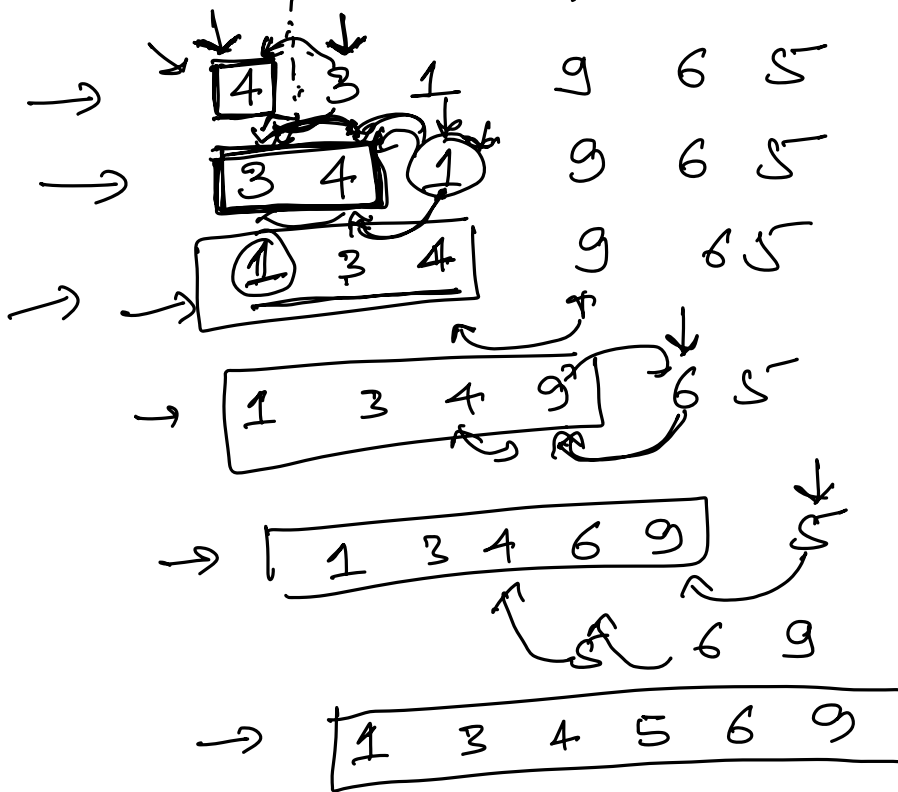 4 3 1 9 6 5
3 4 1 9 6 5
1 3 4 9 6 5
1 3 4 9 6 5
1 3 4 6 9 5
5 6 9
1 3 4 5 6 9